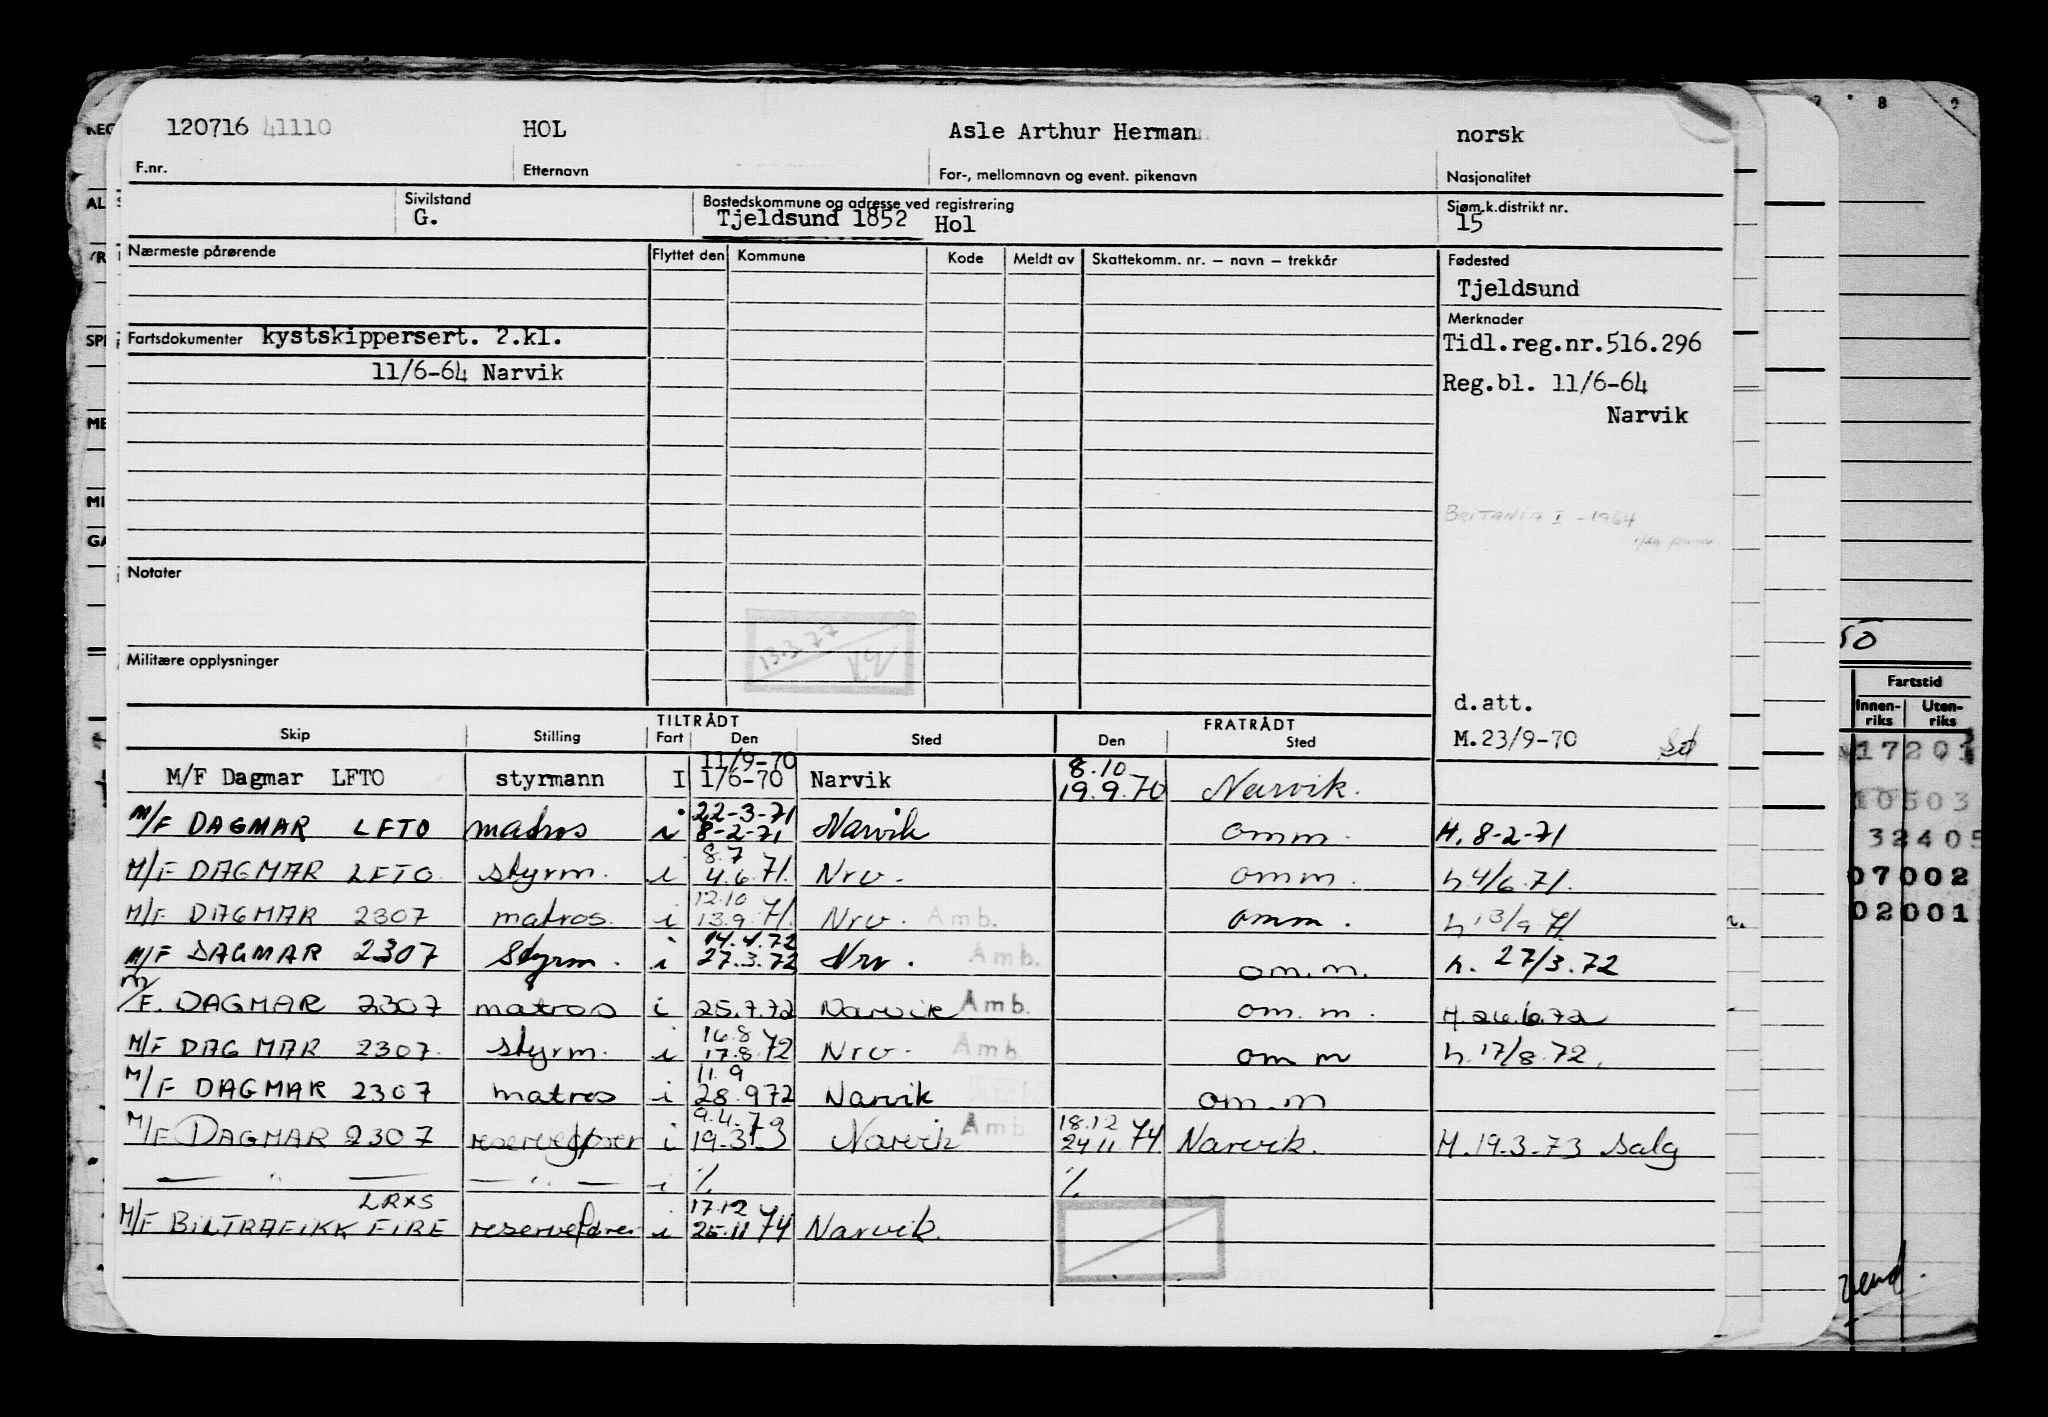 120716 41110 HOL Asle Arthur Herman norsk
F.nr. Etternavn For-, mellomnavn og event. pikenavn Nasjonalitet
Sivilstand Bostedskommune og adresse ved registrering Sjøm.k.distrikt nr.
G. Tjeldsund 1852 Hol 15
Nærmeste pårørende Flyttet den Kommune Kode Meldt av Skattekomm. nr. – navn – trekkår Fødested
Tjeldsund
Merknader
Fartsdokumenter kystskippersert. 2.kl. Tidl.reg.nr.516.296
11/6-64 Narvik Reg.bl. 11/6-64
Narvik
BRITANIA I -1964
Notater
13.3.77
Militære opplysninger
d.att.
M.23/9-70
TILTRÅDT FRATRÅDT
Skip Stilling Fart Den Sted Den Sted
11/9-70 8.10
M/F Dagmar LFTO styrmann I 1/6-70 Narvik 19.9.70 Narvik.
22-3-71
M/F DAGMAR LFTO matros i 8-2-71 Narvik omm. H. 8-2-71
8.7
M/F DAGMAR LFTO. styrm. i 4.6.71. Nrv. omm. h 4/6.71.
12.10
M/F DAGMAR 2307 matros. i 13.9.71. Nrv. Amb. omm. h 13/9 71
14.4.72
M/F DAGMAR 2307 Styrm. i 27.3.72 Nrv. Amb. om.m. h. 27/3.72
M/F. DAGMAR 2307 matros i 25.7.72 Narvik Amb. om.m. H.26.6.72
16.8
M/F DAGMAR 2307. styrm. i 17.8.72 Nrv. Amb om m h.17/8.72.
11.9
M/F DAGMAR 2307 matros i 28.972 Narvik Amb om.m
9.4.73 18.12
M/F DAGMAR 2307 reservefører i 19-3.73 Narvik Amb 24.11.74. Narvik. H.19.3-73 Salg
— " — — " — i % %
LRXS 17.12
M/F BILTRAFIKK FIRE reservefører i 25.11.74 Narvik.
KEG
AL
YR
SPE
ME
MI
GA
7 8 9
50
Fartstid
Innen-riks Uten-riks
17201
10503
32405
07002
02001